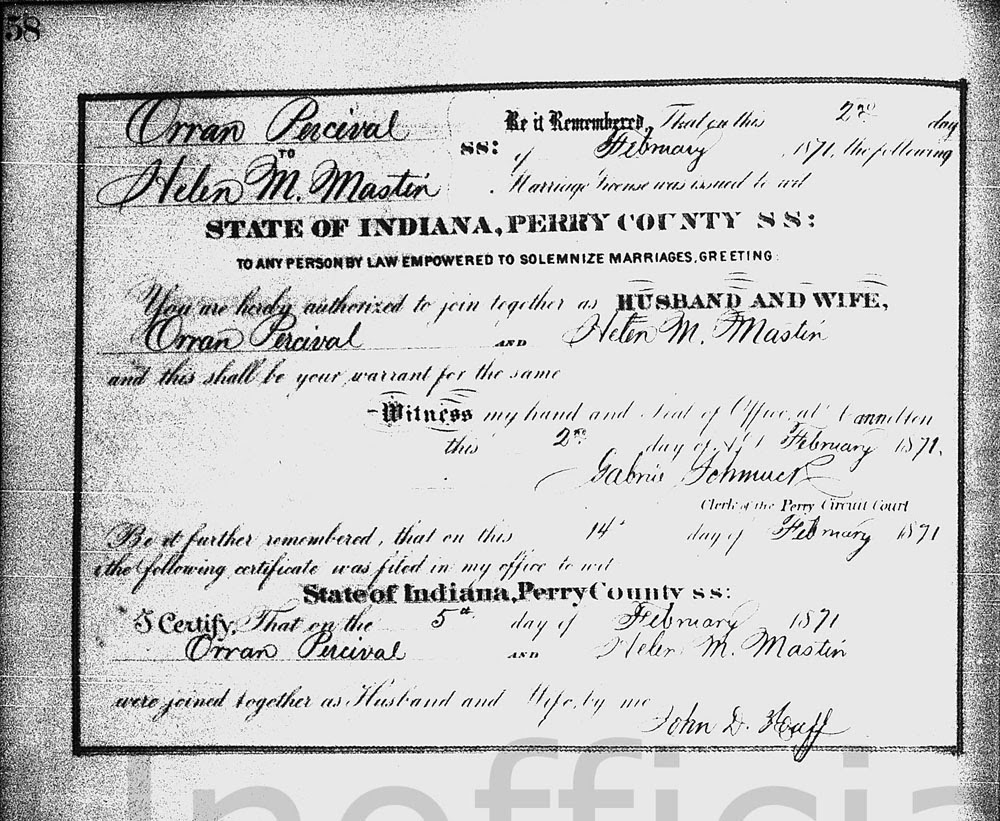 58
Orran Percival
TO
Helen M. Mastin
ss:
Be it Remembered, That on this 2nd day
of February 1871, the following
Marriage License was issued to wit
STATE OF INDIANA, PERRY COUNTY SS:
TO ANY PERSON BY LAW EMPOWERED TO SOLEMNIZE MARRIAGES, GREETING:
You are hereby authorized to join together as HUSBAND AND WIFE,
Orran Percival AND Helen M. Mastin
and this shall be your warrant for the same
Witness my hand and Seal of Office, at Cannelton
this 2nd day of February 1871.
Gabriel Schmuck
Clerk of the Perry Circuit Court
Be it further remembered, that on this 14 day of February 1871
the following certificate was filed in my office to wit
State of Indiana, Perry County ss:
I Certify, That on the 5th day of February 1871
Orran Percival AND Helen M. Mastin
were joined together as Husband and Wife, by me
John D.
Unofficia